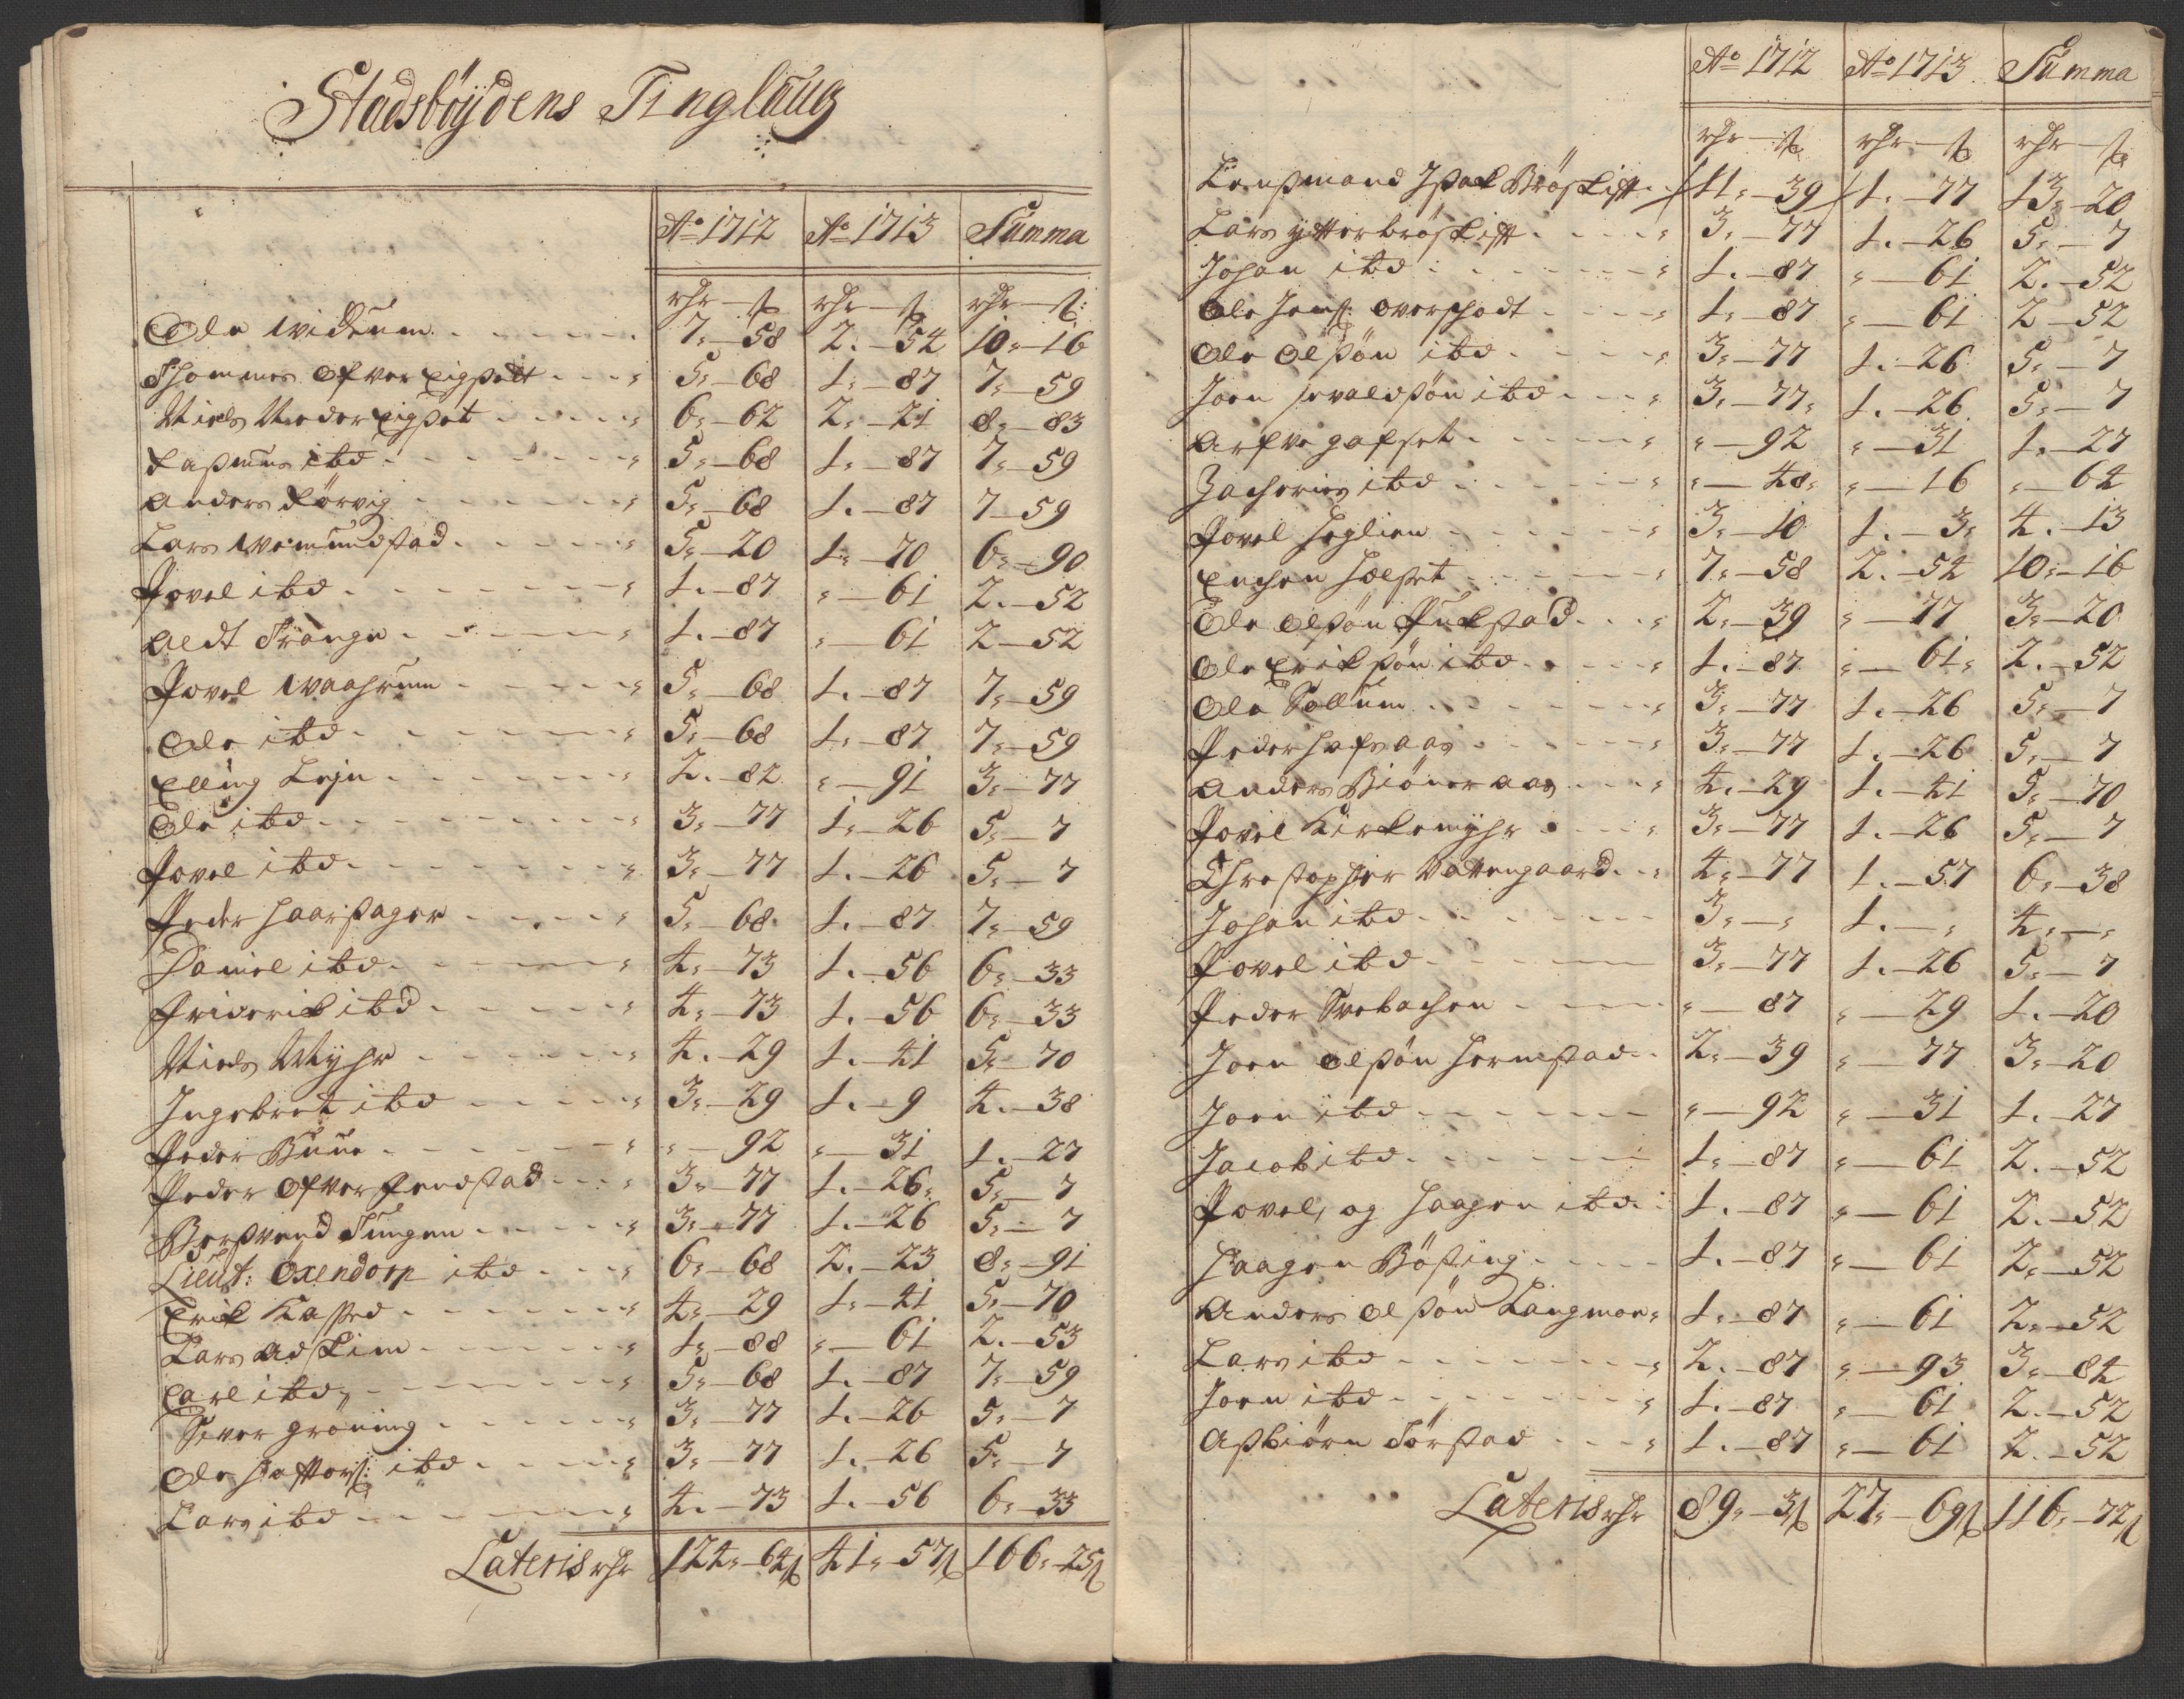 Stadsböÿdens Tinglaug
Ao 1712 Ao 1713 Summa
rdr — ß rdr — ß rdr — ß:
Ole Widum 7 - 58 2 - 54 10 - 16
Thommes Ofver Eigßedt 5 - 68 1 - 87 7 - 59
Niels Neder Eigßet 6 - 62 2 - 21 8 - 83
Raßmus ibd 5 - 68 1 - 87 7 - 59
Anders Rörvig 5 - 68 1 - 87 7 - 59
Lars Wemundstad 5 - 20 1 - 70 6 - 90
Povel ibd 1 - 87 " - 61 2 - 52
Aldt Trange 1 - 87 " - 61 2 - 52
Povel Waahrum 5 - 68 1 - 87 7 - 59
Ole ibd 5 - 68 1 - 87 7 - 59
Elling Leju 2 - 82 " - 91 3 - 77
Ole ibd 3 - 77 1 - 26 5 - 7
Povel ibd 3 - 77 1 - 26 5 - 7
Peder Haarstager 5 - 68 1 - 87 7 - 59
Daniel ibd 4 - 73 1 - 56 6 - 33
Friderik ibd 4 - 73 1 - 56 6 - 33
Niels Myhr 4 - 29 1 - 41 5 - 70
Ingebret ibd 3 - 29 1 - 9 4 - 38
Peder Buue " - 92 " - 31 1 - 27
Peder Ofver Fendstad 3 - 77 1 - 26 5 - 7
Berßvend Tungen 3 - 77 1 - 26 5 - 7
Lieut: Oxendorp ibd 6 - 68 2 - 23 8 - 91
Erik Kaßted 4 - 29 1 - 41 5 - 70
Lars Adskim 1 - 88 " - 61 2 - 53
Carl ibd 5 - 68 1 - 87 7 - 59
Siver Gröning 3 - 77 1 - 26 5 - 7
Ole Hafftors: ibd 3 - 77 1 - 26 5 - 7
Lars ibd 4 - 73 1 - 56 6 - 33
Lateris rdr 124 - 64ß 41 - 57ß 166 - 25ß
Ao 1712 Ao 1713 Summa
rdr — ß rdr — ß rdr — ß
Lensmand Isak Bröskift 11 - 39 1 - 77 13 - 20
Lars ytterbröskift 3 - 77 1 - 26 5 - 7
Johan ibd 1 - 87 " - 61 2 - 52
Ole Jens: overskodt 1 - 87 " - 61 2 - 52
Ole Olßön ibd 3 - 77 1 - 26 5 - 7
Joen Ervaldßön ibd 3 - 77 1 - 26 5 - 7
Arfve Hafset " - 92 " - 31 1 - 27
Zacharias ibd " - 48 " - 16 " - 64
Povel Heglien 3 - 10 1 - 3 4 - 13
Enchen Holset 7 - 58 2 - 54 10 - 16
Ole Olßön Pukstad 2 - 39 " - 77 3 - 20
Ole Erikßön ibd 1 - 87 " - 61 2 - 52
Ole Sollum 3 - 77 1 - 26 5 - 7
Peder Hofsaas 3 - 77 1 - 26 5 - 7
Anders Biöneraas 4 - 29 1 - 41 5 - 70
Povel Kirkemyhr 3 - 77 1 - 26 5 - 7
Chrestopher Vattengaard 4 - 77 1 - 57 6 - 38
Johan ibd 3 - " 1 - " 4 - "
Povel ibd 3 - 77 1 - 26 5 - 7
Peder Svebachen " - 87 " - 29 1 - 20
Joen Olßön Hermstad 2 - 39 " - 77 3 - 20
Joen ibd " - 92 " - 31 1 - 27
Jacob ibd 1 - 87 " - 61 2 - 52
Povel, og Haagen ibd 1 - 87 " - 61 2 - 52
Haagen Bösting 1 - 87 " - 61 2 - 52
Anders Olßön Langmoe 1 - 87 " - 61 2 - 52
Lars ibd 2 - 87 " - 93 3 - 84
Joen ibd 1 - 87 " - 61 2 - 52
Aßbiörn Törstad 1 - 87 " - 61 2 - 52
Lateris rdr 89 - 3ß 27 - 69ß 116 - 72ß